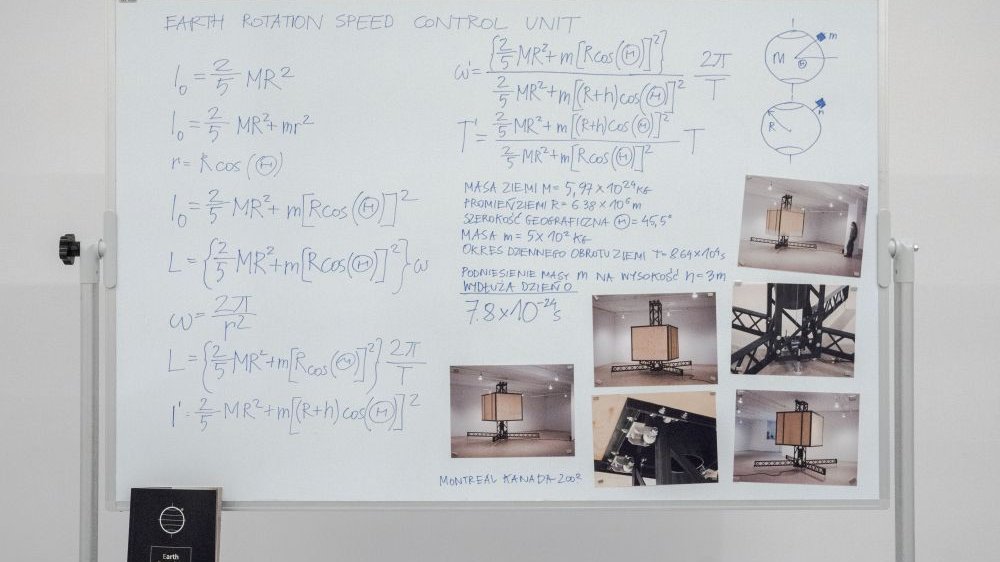 EARTH ROTATION SPEED CONTROL UNIT
I₀ = 2/5 MR²
I₀ = 2/5 MR² + mr²
r = R cos (Θ)
I₀ = 2/5 MR² + m[R cos(Θ)]²
L = {2/5 MR² + m[R cos(Θ)]²} ω
ω = 2π/r²
L = {2/5 MR² + m[R cos(Θ)]²} 2π/T
I' = 2/5 MR² + m[(R+h) cos(Θ)]²
ω' = {2/5 MR² + m[R cos(Θ)]²} / 2/5 MR² + m[(R+h) cos(Θ)]² 2π/T
T' = 2/5 MR² + m[(R+h) cos(Θ)]² / 2/5 MR² + m[R cos(Θ)]² T
MASA ZIEMI M = 5,97 × 10²⁴ KG
PROMIEŃ ZIEMI R = 6.38 × 10⁶ m
SZEROKOŚĆ GEOGRAFICZNA Θ = 45,5°
MASA m = 5 × 10² KG
OKRES DZIENNEGO OBROTU ZIEMI T = 8.64 × 10⁴ s
PODNIESIENIE MASY m NA WYSOKOŚĆ h = 3m
WYDŁUŻA DZIEŃ O
7.8 × 10⁻²⁴ s
M
Θ
m
R
m
MONTREAL KANADA 2002
Earth